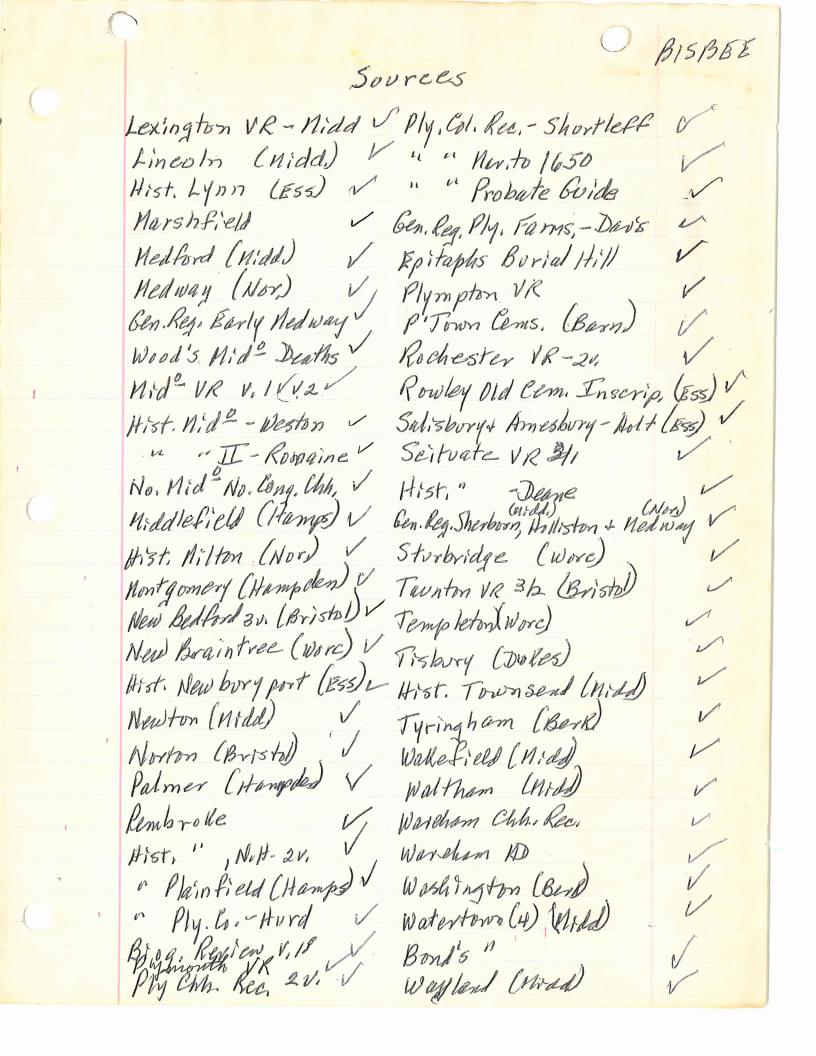 BISBEE
Sources
Lexington VR - Midd ✓
Lincoln (Midd.) ✓
Hist. Lynn (Ess) ✓
Marshfield ✓
Medford (Midd.) ✓
Medway (Nor.) ✓
Gen. Reg. Early Medway ✓
Wood's Mid⁰ Deaths ✓
Mid⁰ VR v. 1 ✓ v. 2 ✓
Hist. Mid⁰ - Weston ✓
" " II - Romaine ✓
No. Mid⁰ No. Cong. Chh. ✓
Middlefield (Hamps) ✓
Hist. Milton (Nor) ✓
Montgomery (Hampden) ✓
New Bedford 3v. (Bristol) ✓
New Braintree (Worc) ✓
Hist. Newburyport (Ess) ✓
Newton (Midd) ✓
Norton (Bristol) ✓
Palmer (Hampden) ✓
Pembroke ✓
Hist. ", N.H. 2v. ✓
" Plainfield (Hamps) ✓
" Ply. Co. - Hurd ✓
Biog. Review v. 18 ✓
Plymouth VR ✓
Ply Chh. Rec. 2v. ✓
Ply. Col. Rec. - Shurtleff ✓
" " Mer. to 1650 ✓
" " Probate Guide ✓
Gen. Reg. Ply. Fams. - Davis ✓
Epitaphs Burial Hill ✓
Plympton VR ✓
P'Town Cems. (Barn) ✓
Rochester VR - 2v. ✓
Rowley Old Cem. Inscrip. (Ess) ✓
Salisbury + Amesbury - Holt (Ess) ✓
Scituate VR ✓
Hist. " - Deane ✓
(Midd.) (Nor)
Gen. Reg. Sherborn, Holliston + Medway ✓
Sturbridge (Worc) ✓
Taunton VR 3/2 (Bristol) ✓
Templeton (Worc) ✓
Tisbury (Dukes) ✓
Hist. Townsend (Midd) ✓
Tyringham (Berk) ✓
Wakefield (Midd) ✓
Waltham (Midd) ✓
Wareham Chh. Rec. ✓
Wareham ✓
Washington (Berk) ✓
Watertown (4) (Midd) ✓
Bond's " ✓
Wayland (Midd) ✓